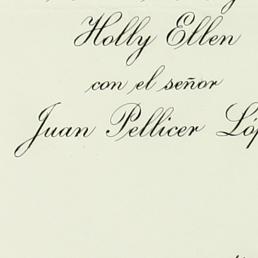 Holly Ellen
con el señor
Juan Pellicer